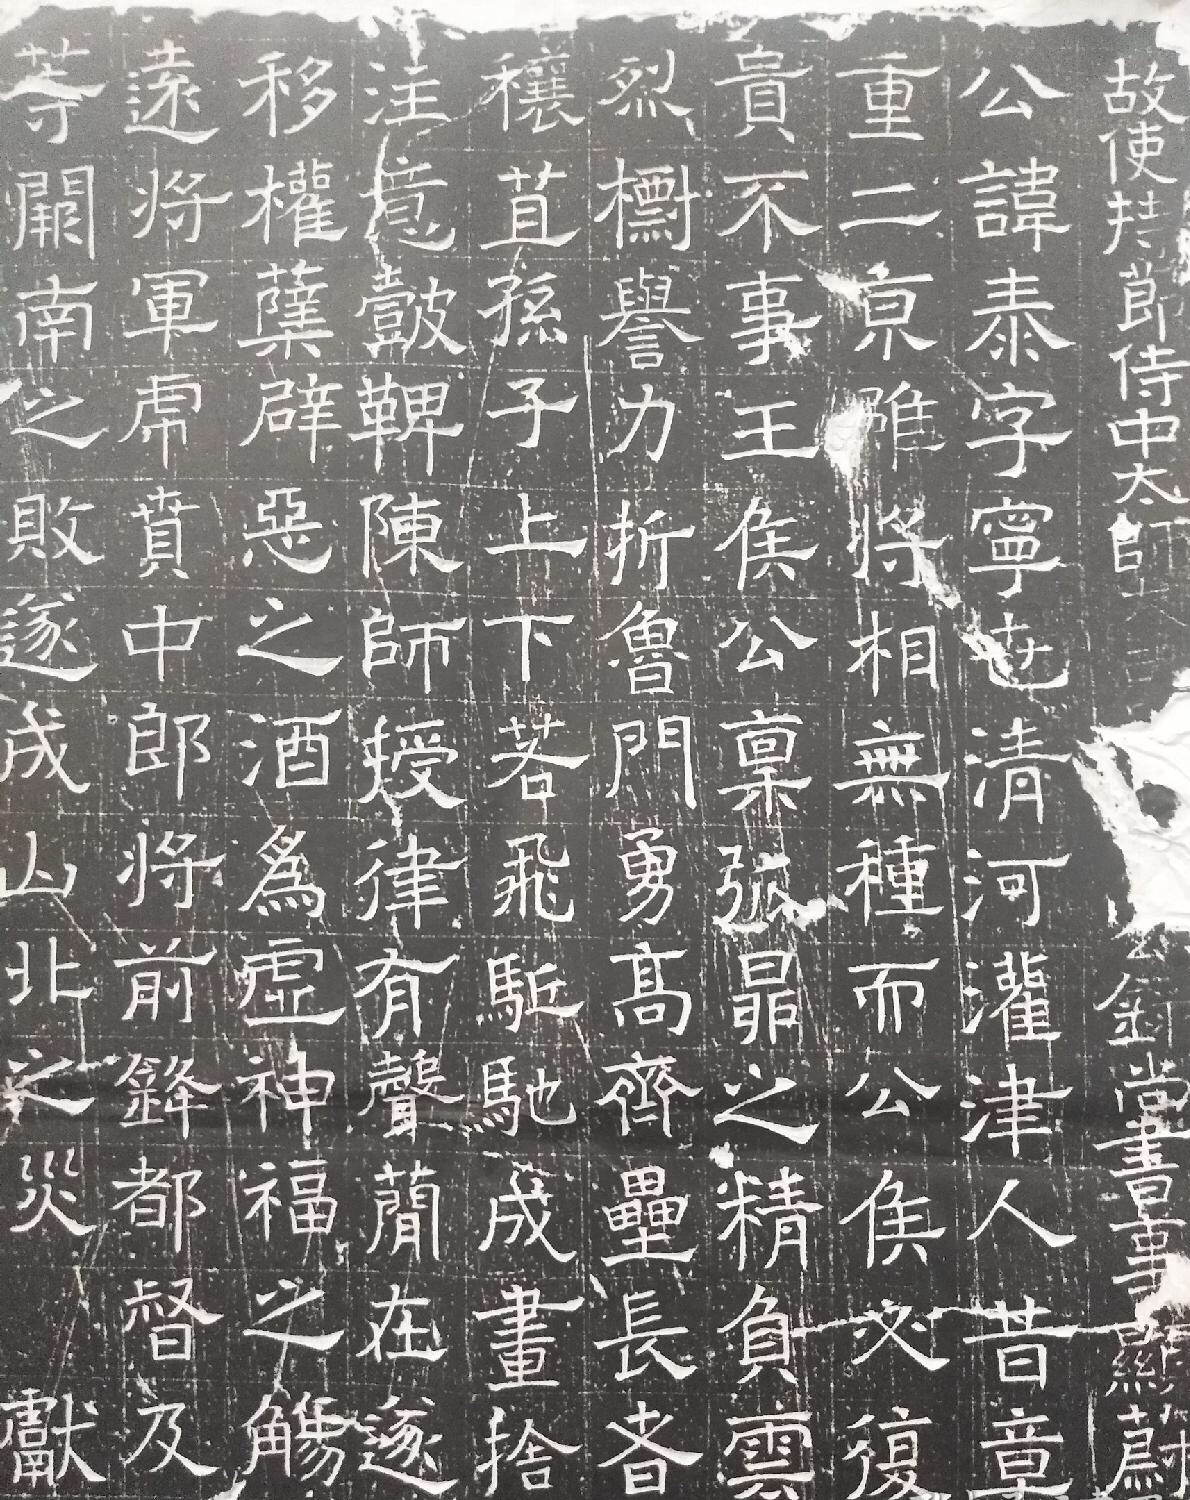 故使持節侍中太師公錄尚書事顯蔚
公諱泰字寧屯清河灌津人昔章
重二京雖將相無種而公侯必復
貴不事王侯公稟弧昴之精負雲
烈櫛譽力折魯門勇高齊壘長者
穰苴孫子上下若飛駈馳成畫捨
注意鼓鞞陳師授律有聲簡在遂
移權蘖辟惡之酒為虛神福之觴
遠將軍虎賁中郎將前鋒都督及
等闕南之敗遂成山北之災獻